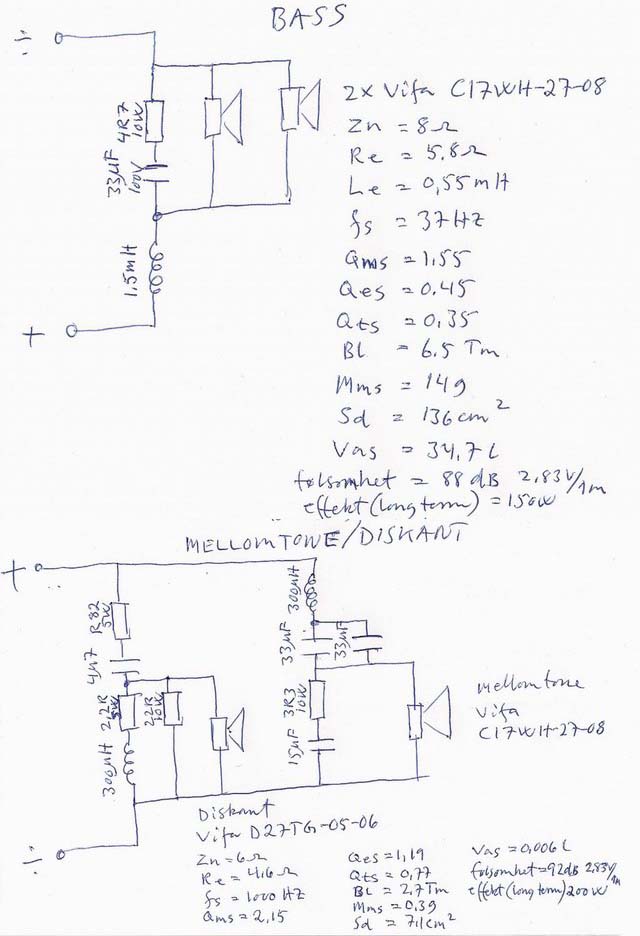 BASS
÷
4R7
10W
33µF
100V
1.5mH
+
2x Vifa C17WH-27-08
Zn = 8Ω
Re = 5.8Ω
Le = 0,55mH
fs = 37HZ
Qms = 1.55
Qes = 0.45
Qts = 0.35
BL = 6.5 Tm
Mms = 14g
Sd = 136cm²
Vas = 34,7L
følsomhet = 88 dB 2.83V/1m
effekt (long term) = 150W
MELLOMTONE/DISKANT
+
R82
5W
4µ7
2,2R
5W
22R
10W
300µH
÷
300µH
33µF
33µF
3R3
10W
15µF
mellomtone
Vifa
C17WH-27-08
Diskant
Vifa D27TG-05-06
Zn = 6Ω
Re = 4.6Ω
fs = 1000 HZ
Qms = 2,15
Qes = 1,19
Qts = 0,77
BL = 2,7Tm
Mms = 0,39
Sd = 7,1cm²
Vas = 0,006 L
følsomhet = 92dB 2,83V/1m
effekt (long term) 200W